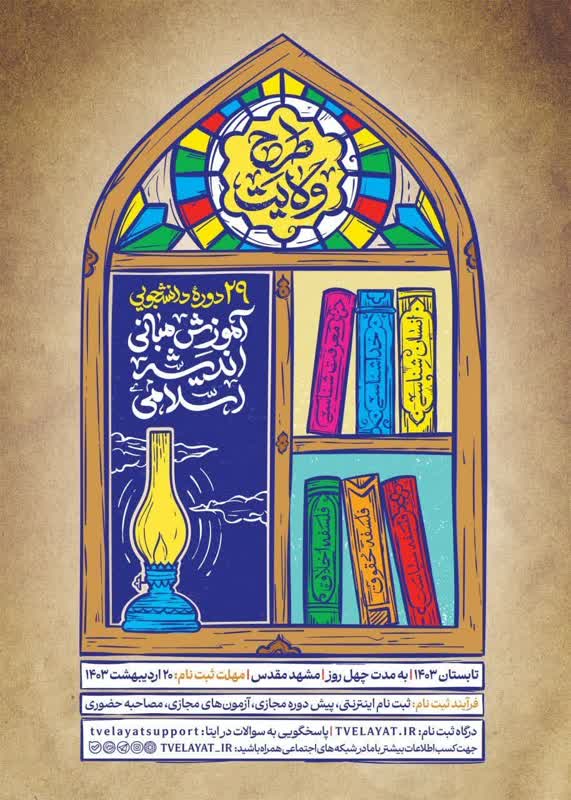 طرح
ولایت
۲۹ دورهٔ دانشجویی
آموزش مبانی
اندیشه
اسلامی
معرفت شناسی
خداشناسی
انسان شناسی
فلسفه اخلاق
فلسفه حقوق
فلسفه سیاست
تابستان ۱۴۰۳ | به مدت چهل روز | مشهد مقدس | مهلت ثبت نام: ۲۰ اردیبهشت ۱۴۰۳
فرآیند ثبت نام: ثبت نام اینترنتی، پیش دوره مجازی، آزمون‌های مجازی، مصاحبه حضوری
درگاه ثبت نام: TVELAYAT.IR | پاسخگویی به سوالات در ایتا: tvelayatsupport
جهت کسب اطلاعات بیشتر با ما در شبکه های اجتماعی همراه باشید: TVELAYAT_IR